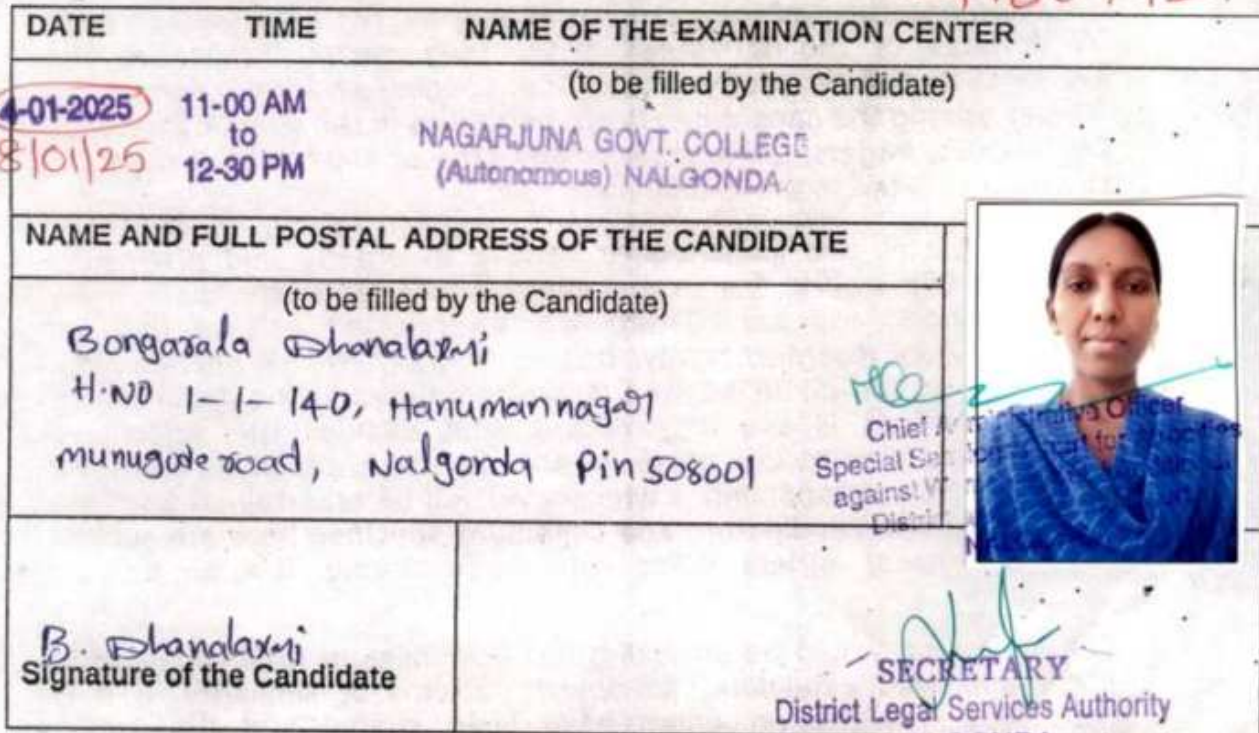 DATE TIME NAME OF THE EXAMINATION CENTER
(to be filled by the Candidate)
4-01-2025 11-00 AM
to
8/01/25 12-30 PM
NAGARJUNA GOVT. COLLEGE
(Autonomous) NALGONDA
NAME AND FULL POSTAL ADDRESS OF THE CANDIDATE
(to be filled by the Candidate)
Bongarala Dhanalaxmi
H.NO 1-1-140, Hanuman nagar
munugode road, Nalgonda Pin 508001
Chief Administrative Officer
Special
against
District
B. Dhanalaxmi
Signature of the Candidate
SECRETARY
District Legal Services Authority